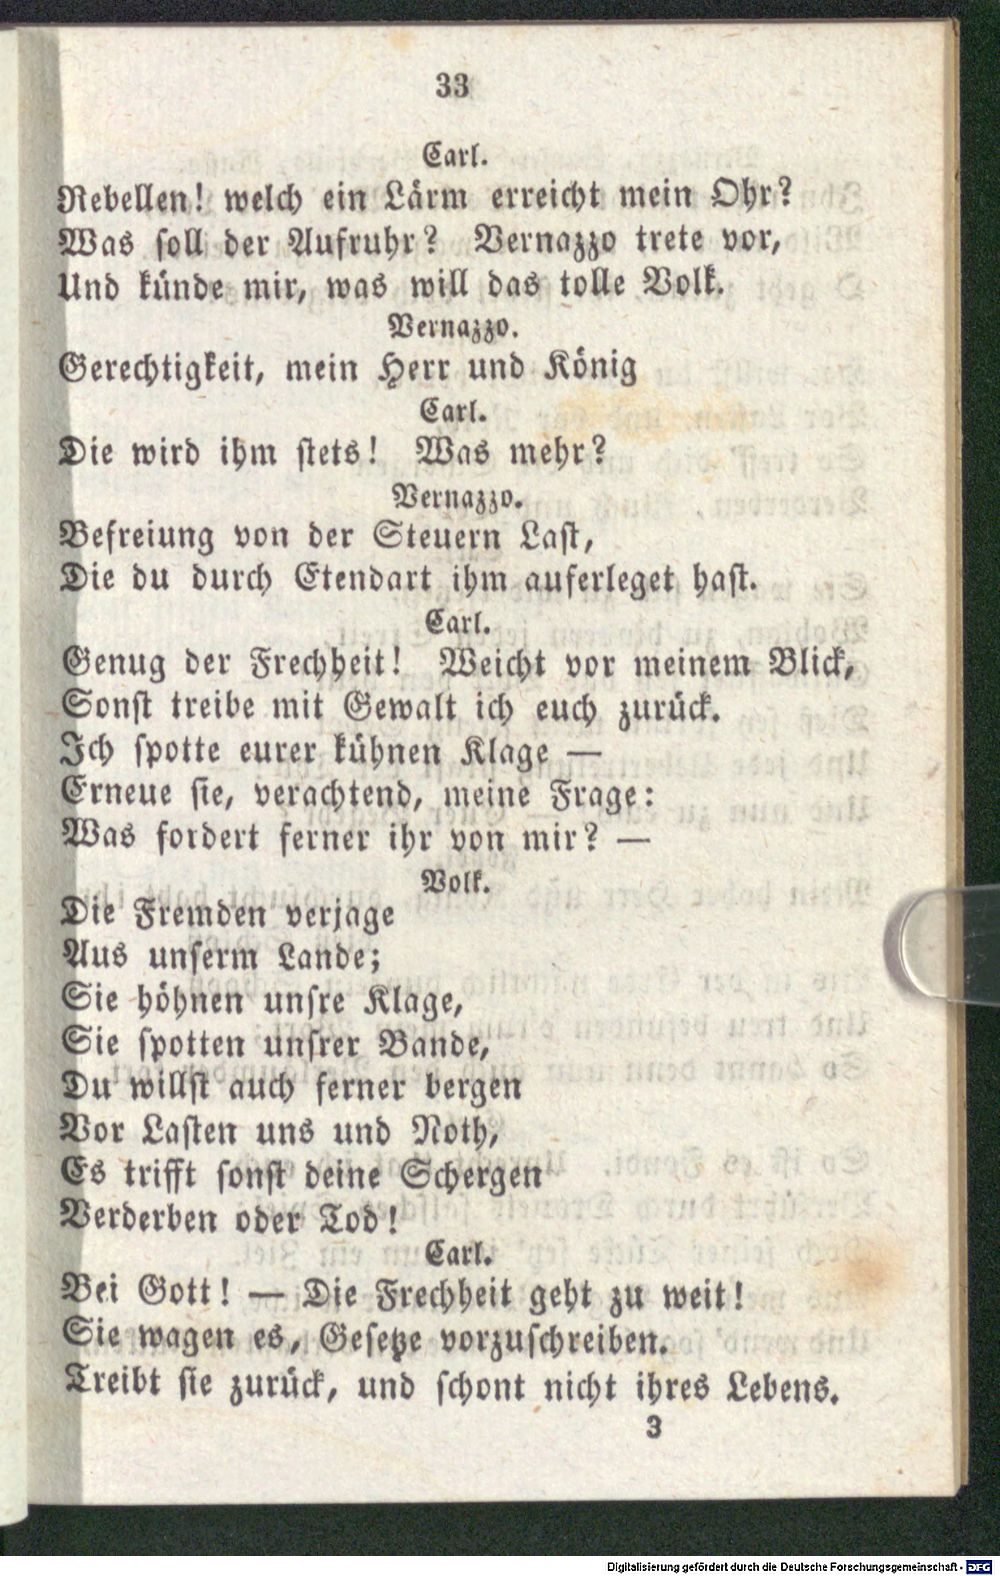 33
Carl.
Rebellen! welch ein Lärm erreicht mein Ohr?
Was soll der Aufruhr? Vernazzo trete vor,
Und künde mir, was will das tolle Volk.
Vernazzo.
Gerechtigkeit, mein Herr und König
Carl.
Die wird ihm stets! Was mehr?
Vernazzo.
Befreiung von der Steuern Last,
Die du durch Etendart ihm auferleget hast.
Carl.
Genug der Frechheit! Weicht vor meinem Blick,
Sonst treibe mit Gewalt ich euch zurück.
Ich spotte eurer kühnen Klage —
Erneue sie, verachtend, meine Frage:
Was fordert ferner ihr von mir? —
Volk.
Die Fremden verjage
Aus unserm Lande;
Sie höhnen unsre Klage,
Sie spotten unsrer Bande,
Du willst auch ferner bergen
Vor Lasten uns und Noth,
Es trifft sonst deine Schergen
Verderben oder Tod!
Carl.
Bei Gott! — Die Frechheit geht zu weit!
Sie wagen es, Gesetze vorzuschreiben.
Treibt sie zurück, und schont nicht ihres Lebens.
3
Digitalisierung gefördert durch die Deutsche Forschungsgemeinschaft - DFG